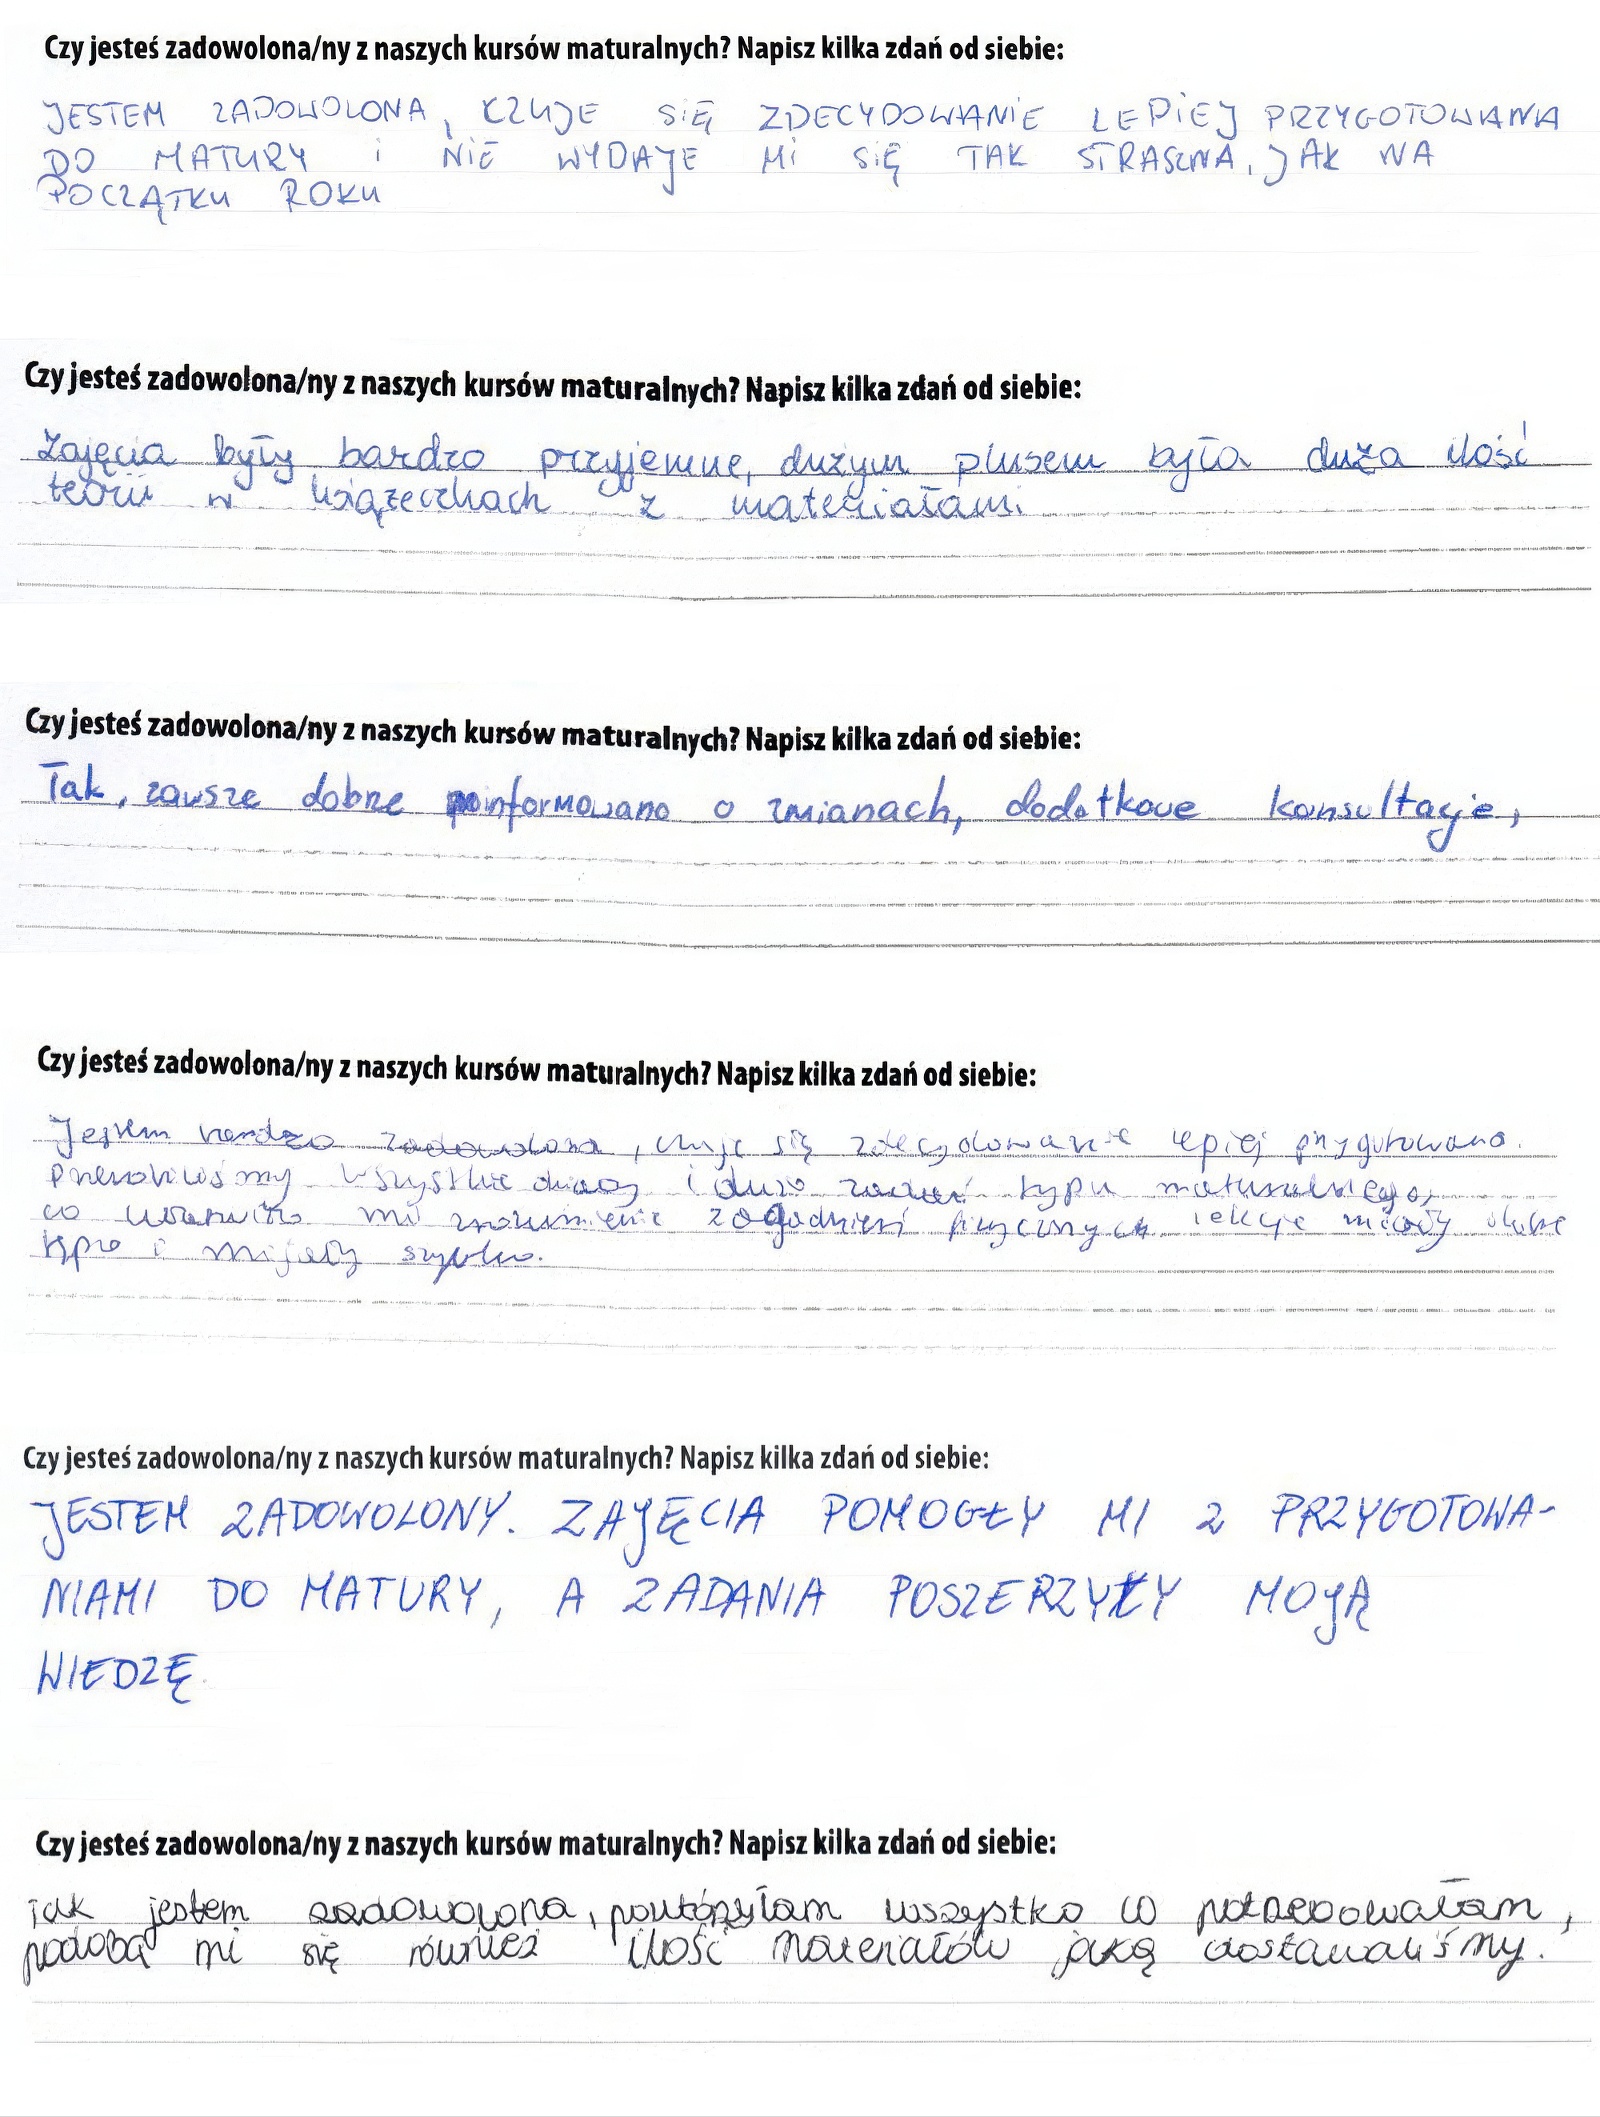 Czy jesteś zadowolona/ny z naszych kursów maturalnych? Napisz kilka zdań od siebie:
JESTEM ZADOWOLONA, CZUJE SIĘ ZDECYDOWANIE LEPIEJ PRZYGOTOWANA
DO MATURY i NIE WYDAJE Mi SIĘ TAK STRASZNA, JAK NA
POCZĄTKU ROKU
Czy jesteś zadowolona/ny z naszych kursów maturalnych? Napisz kilka zdań od siebie:
Zajęcia były bardzo przyjemne, dużym plusem była duża ilość
teorii w książeczkach z materiałami.
Czy jesteś zadowolona/ny z naszych kursów maturalnych? Napisz kilka zdań od siebie:
Tak, zawsze dobrze poinformowano o zmianach, dodatkowe konsultacje,
Czy jesteś zadowolona/ny z naszych kursów maturalnych? Napisz kilka zdań od siebie:
Jestem bardzo zadowolona, czuję się zdecydowanie lepiej przygotowana.
Przerobiliśmy wszystkie działy i dużo zadań typu maturalnego,
co ułatwiło mi zrozumienie zagadnień fizycznych. lekcje miały
i mijały szybko.
Czy jesteś zadowolona/ny z naszych kursów maturalnych? Napisz kilka zdań od siebie:
JESTEM ZADOWOLONY. ZAJĘCIA POMOGŁY MI Z PRZYGOTOWA-
NIAMI DO MATURY, A ZADANIA POSZERZYŁY MOJĄ
WIEDZĘ.
Czy jesteś zadowolona/ny z naszych kursów maturalnych? Napisz kilka zdań od siebie:
Tak jestem zadowolona, powtórzyłam wszystko co potrzebowałam,
podoba mi się również ilość materiałów jaką dostawaliśmy.